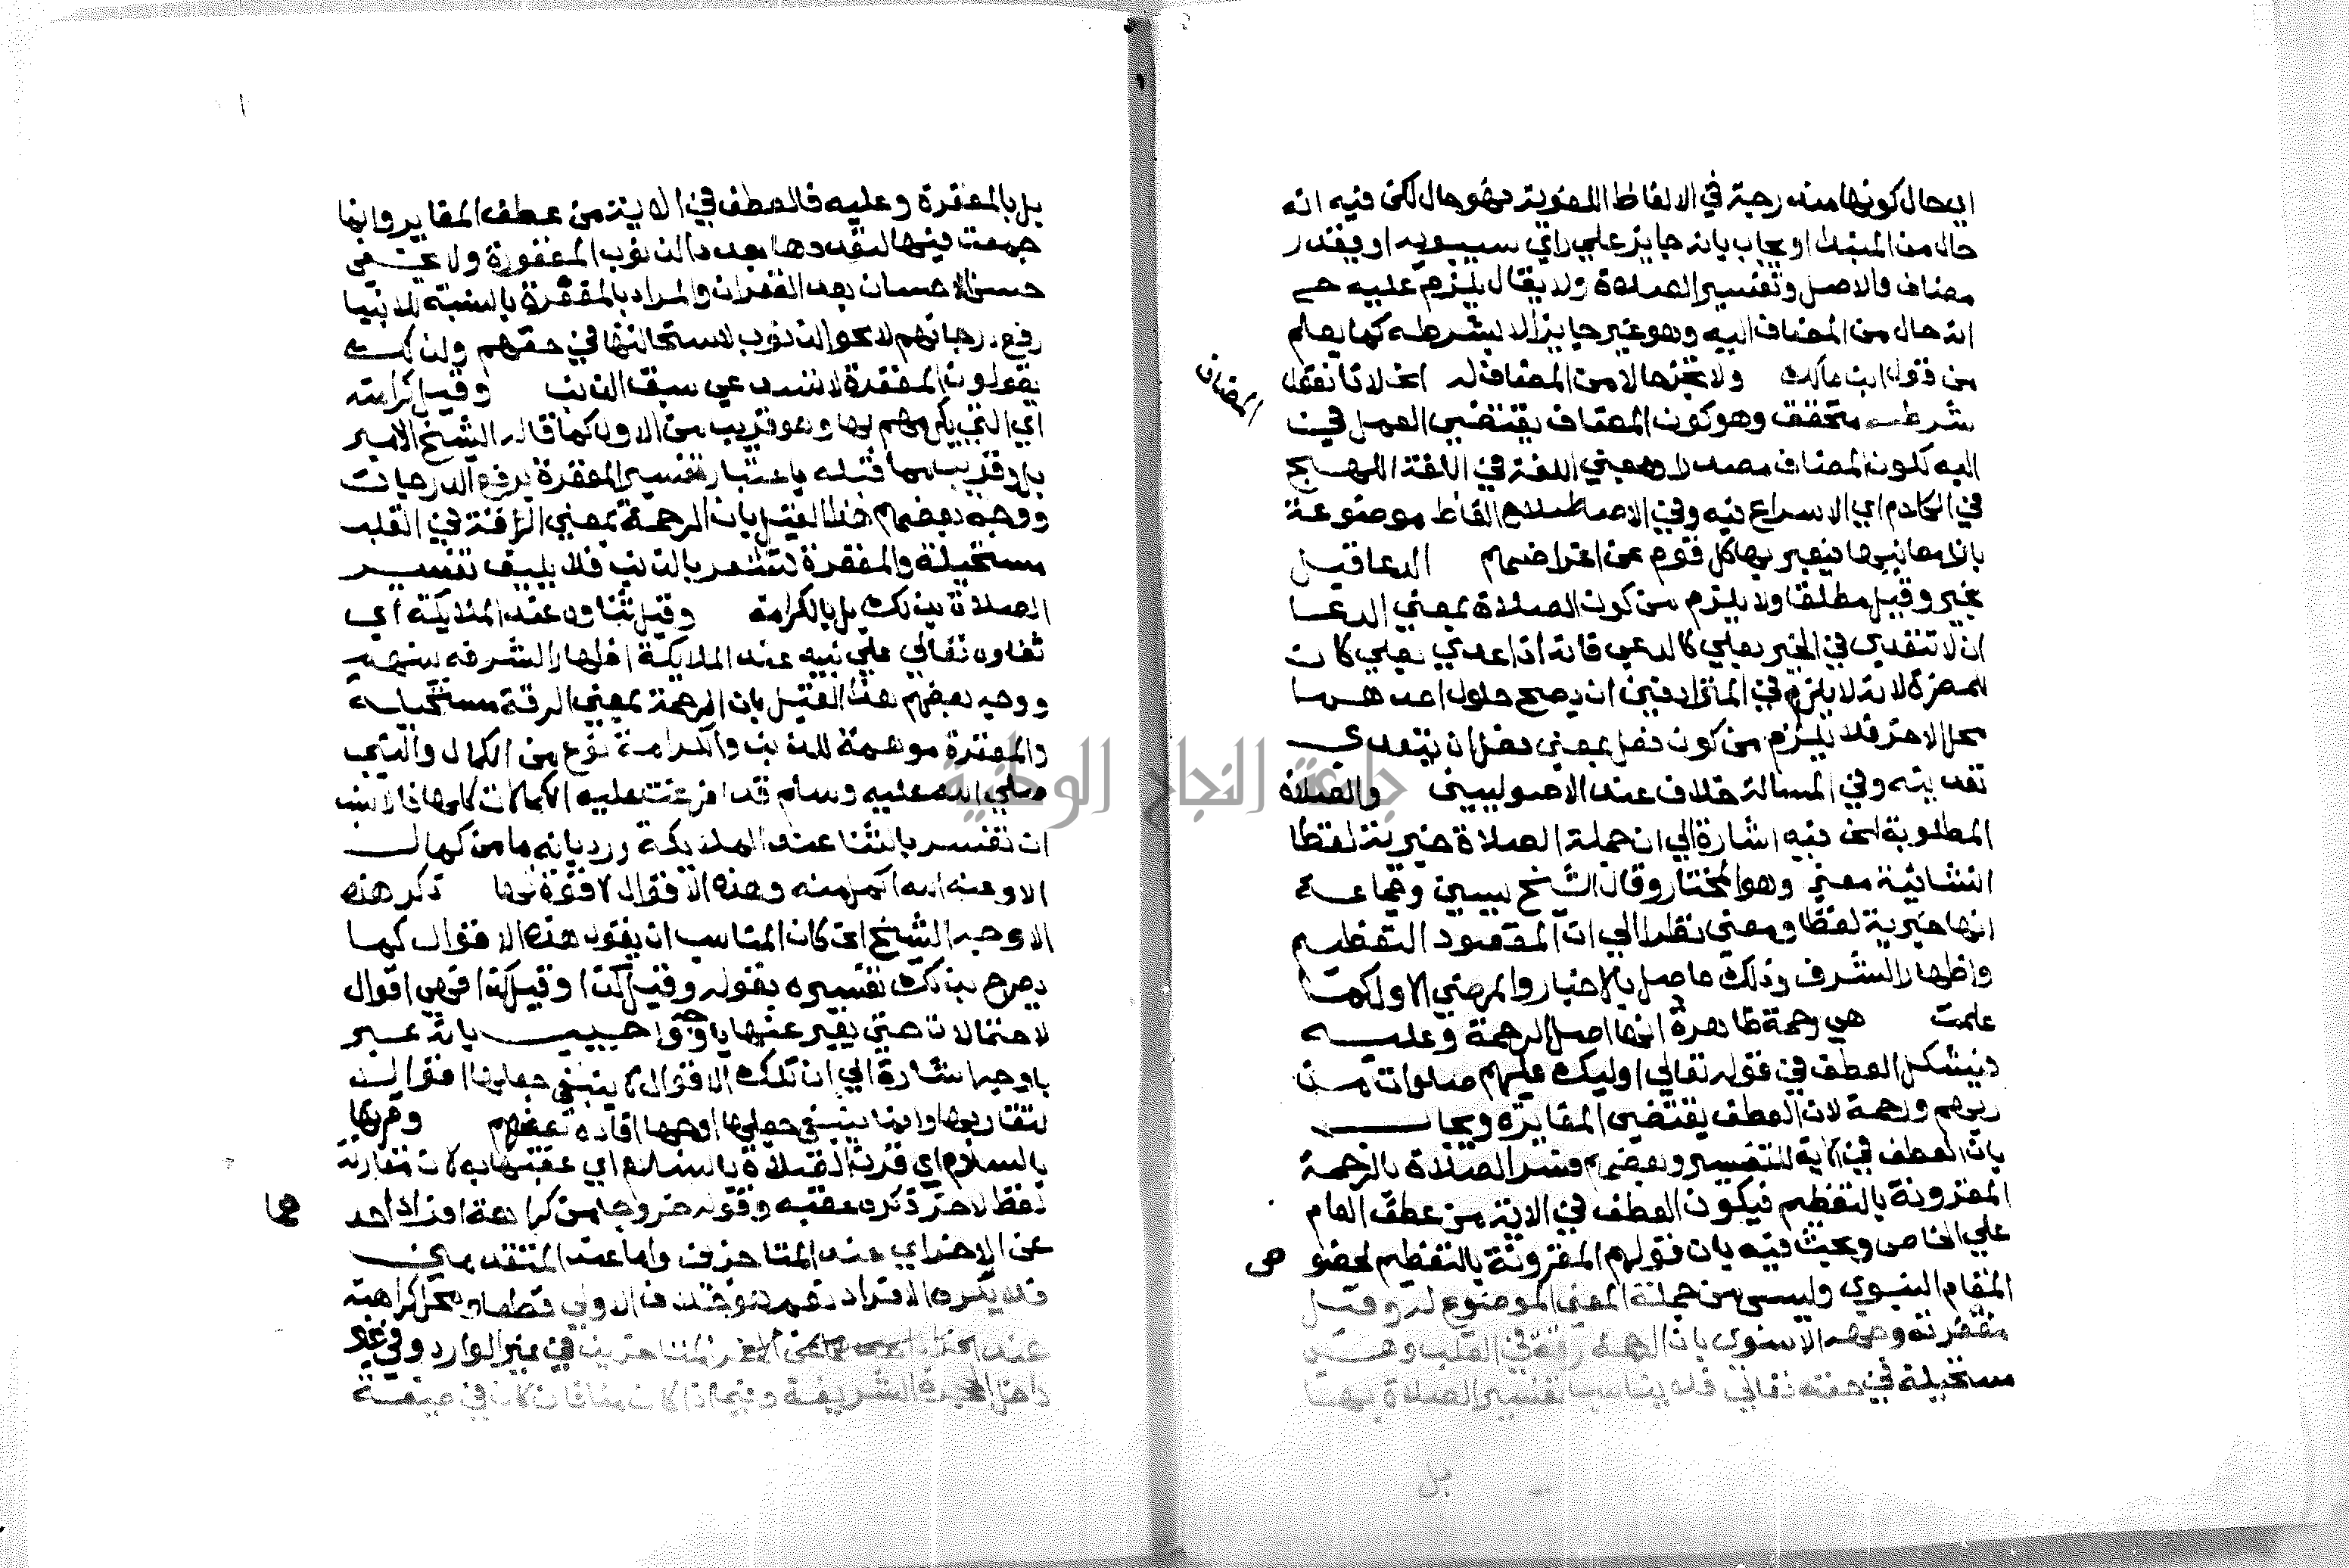 اي حال كونها مندرجة في الالفاظ اللغوية فهو حال لكن فيه انه
حال من المبتدا ويجاب بانه جايز علي راي سيبويه او يقدر
مضاف فالاصل وتفسير الصلاة ولا يقال يلزم عليه ح
انه حال من المضاف اليه وهو غير جايز الا بشرطه كما يعلم
من قول ابن مالك ولا تجز حالا من المضاف له الخ لانا نقول
شرطه متحقق وهو كون المضاف يقتضي العمل في
المضاف
اليه لكون المضاف مصدرا وهي اللغة في اللغة اللهج
في الكلام اي الاسراع فيه وفي الاصطلاح الفاظ موضوعة
بازا معانيها يعبر بها كل قوم عن اغراضهم الدعا قيل
بخير وقيل مطلقا ولا يلزم من كون الصلاة بمعني الدعا
ان لا تتعدي في الخير بعلي كالدعي فانه اذا عدي بعلي كان
للمضرة لانه لا يلزم في المترادفين ان يصح حلول احدهما
محل الاخر فلا يلزم من كون فعل بمعني فعل ان يتعدي
تعديته وفي المسالة خلاف عند الاصوليين والصلاة
المطلوبة الخ فيه اشارة الي ان جملة الصلاة خبرية لفظا
انشائية معني وهو المختار وقال الشيخ يسين وجماعة
انها خبرية لفظا ومعني نظرا الي ان المقصود التعظيم
واظهار الشرف وذلك حاصل بالاخبار والمرضي الاول كما
علمت هي رحمة ظاهرة انها اصل الرحمة وعليه
فيشكل العطف في قوله تعالي اوليك عليهم صلوات من
ربهم ورحمة لان العطف يقتضي المغايرة ويجاب
بان العطف في الاية للتفسير وبعضهم فسر الصلاة بالرحمة
المقرونة بالتعظيم فيكون العطف في الاية من عطف العام
علي الخاص وبحث فيه بان قولهم المقرونة بالتعظيم لخصو
ص
المقام النبوي وليس من جملة المعني الموضوع له وقيل
مغفرته وجهه الاسنوي بان الرحمة رقة في القلب وهي
مستحيلة في حقه تعالي فلا يناسب تفسير الصلاة بها
بل
بل بالمغفرة وعليه فالعطف في الاية من عطف المغاير وانما
جمعت فيها لتعددها بعدد الذنوب المغفورة ولا يخفي
حسن الاحسان بعد الغفران والمراد بالمغفرة بالنسبة للانبيا
رفع درجاتهم لا محو الذنوب لاستحالتها في حقهم ولذلك
يقولون المغفرة لا تستدعي سبق الذنب وقيل كرامته
اي التي يكرمهم بها وهو قريب من الاول كما قاله الشيخ الامير
بل وقريب مما قبله باعتبار تفسير المغفرة برفع الدرجات
ووجه بعضهم هذا القيل بان الرحمة بمعني الرافة في القلب
مستحيلة والمغفرة تشعر بالذنب فلا يليق تفسير
الصلاة بذلك بل بالكرامة وقيل ثناوه عند الملايكة اي
ثناوه تعالي علي نبيه عند الملايكة اظهارا لشرفه بينهم
ووجه بعضهم هذا القيل بان الرحمة بمعني الرقة مستحيلة
والمغفرة موهمة للذنب والكرامة نوع من الكمال والنبي
صلي الله عليه وسلم قد افرغت عليه الكمالات كلها فالانسب
ان تفسر بالثنا عند الملايكة ورد بانه ما من كمال
الا وعند الله اكمل منه وهذه الاقوال لا قوة لها ذكر هذه
الاوجه الشيخ الخ كان المناسب ان يقول هذه الاقوال كما
يصرح بذلك تفسيره بقوله وقيل كذا وقيل كذا فهي اقوال
لا احتمالات حتي يعبر عنها باوجه واجيب بانه عبر
باوجه اشارة الي ان تلك الاقوال لا ينبغي جعلها اقوالا
لتقاربها وانما ينبغي جعلها اوجها افاده بعضهم وقرنها
بالسلام اي قرن الصلاة بالسلام اي عقبها به لان مقارنة
لفظ لاخر ذكره عقبه وقوله خروجا من كراهة افراد احد
هما
عن الاخر اي عند المتاخرين واما عند المتقدمين
فلا يكره الافراد نعم هو خلاف الاولي قطعا ومحل كراهته
عند المتاخرين في غير الوارد وفي غير